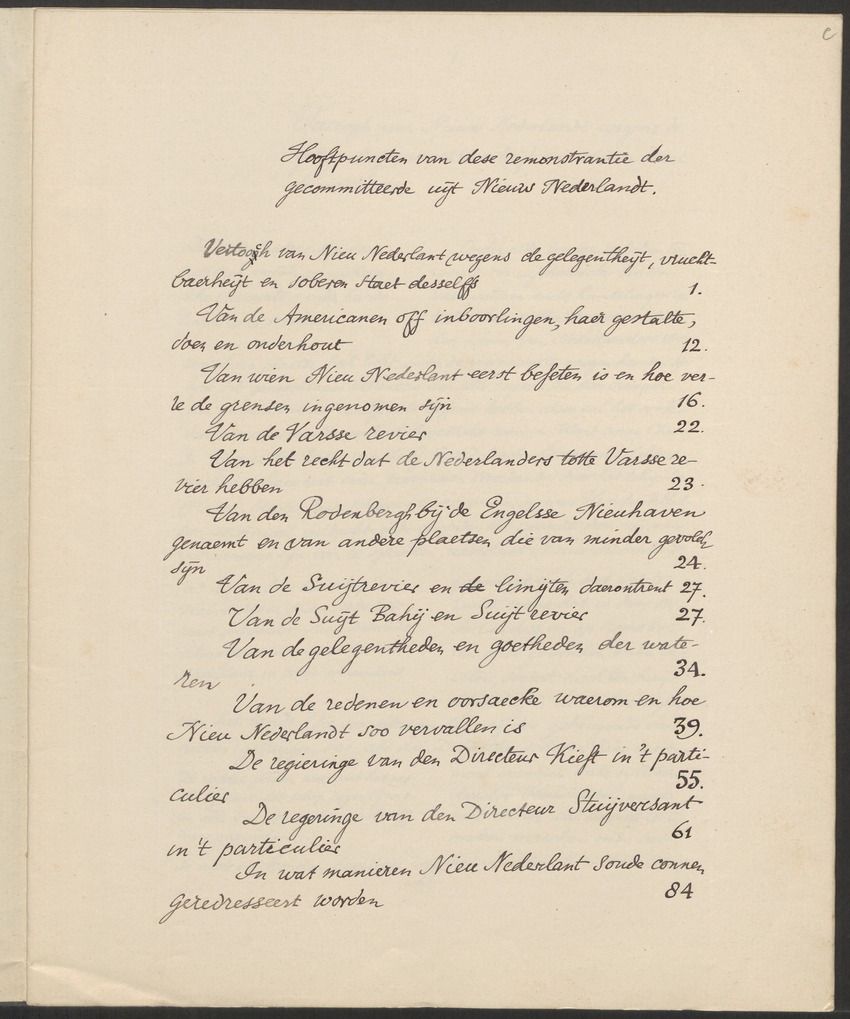 c
Hooftpuncten van dese remonstrantie der
gecommitteerde uijt Nieuw Nederlandt.
Vertoogh van Nieu Nederlant wegens de gelegentheijt, vrucht-
baerheijt en soberen staet desselffs 1.
Van de Americanen off inboorlingen, haer gestalte,
doen en onderhout 12.
Van wien Nieu Nederlant eerst beseten is en hoe ver-
re de grensen ingenomen sijn 16.
Van de Varsse revier 22.
Van het recht dat de Nederlanders totte Varsse re-
vier hebben 23.
Van den Rodenbergh bij de Engelsse Nieuhaven
genaemt en van andere plaetsen die van minder gevolch
sijn 24.
Van de Suijtrevier en de limijten daerontrent 27.
Van de Suijt Bahij en Suijt revier 27.
Van de gelegentheden en goetheden der wate-
ren 34.
Van de redenen en oorsaecke waerom en hoe
Nieu Nederlandt soo vervallen is 39.
De regieringe van den Directeur Kieft in 't parti-
culier 55.
De regeringe van den Directeur Stuijvesant
in 't particulier 61
In wat manieren Nieu Nederlant soude connen
geredresseert worden 84